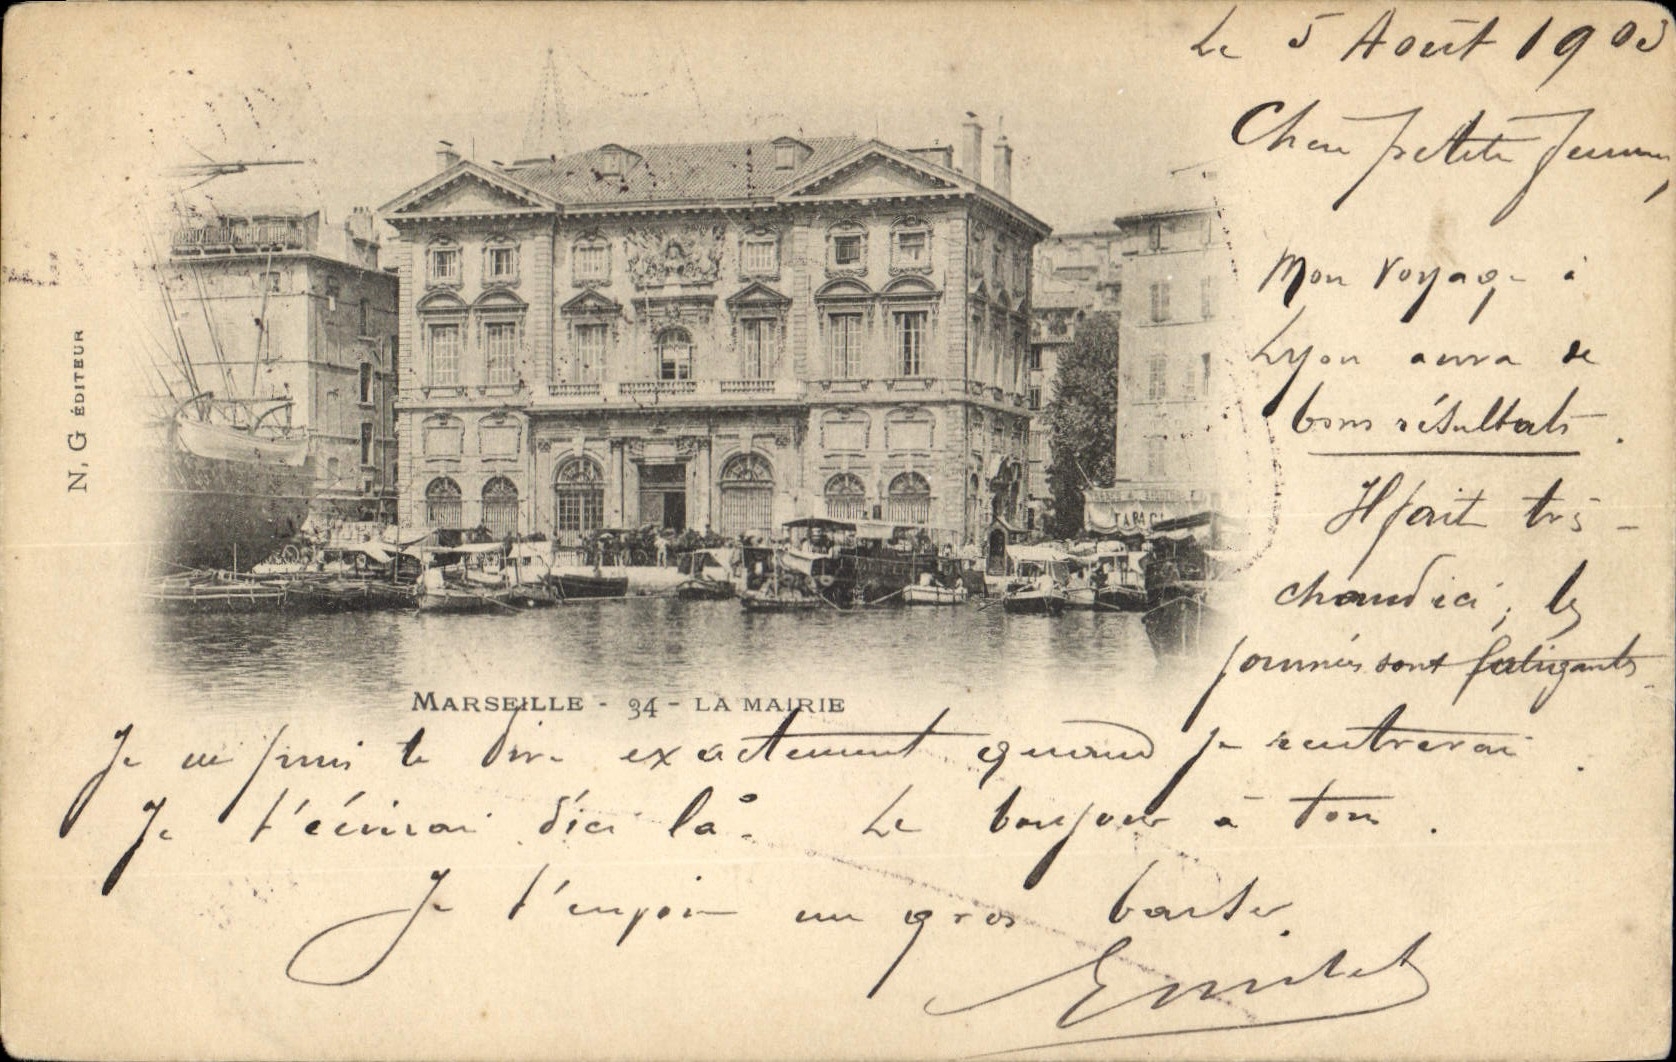 Le 5 Août 1903
Chère petite femme,
Mon voyage à
Lyon aura de
bons résultats.
Il fait très
chaud ici, les
journées sont fatigants.
N. G ÉDITEUR
TABAC
MARSEILLE - 34 - LA MAIRIE
Je ne puis te dire exactement quand je rentrerai.
Je t'écrirai d'ici là. Le bonjour à tous.
Je t'envoie un gros baiser.